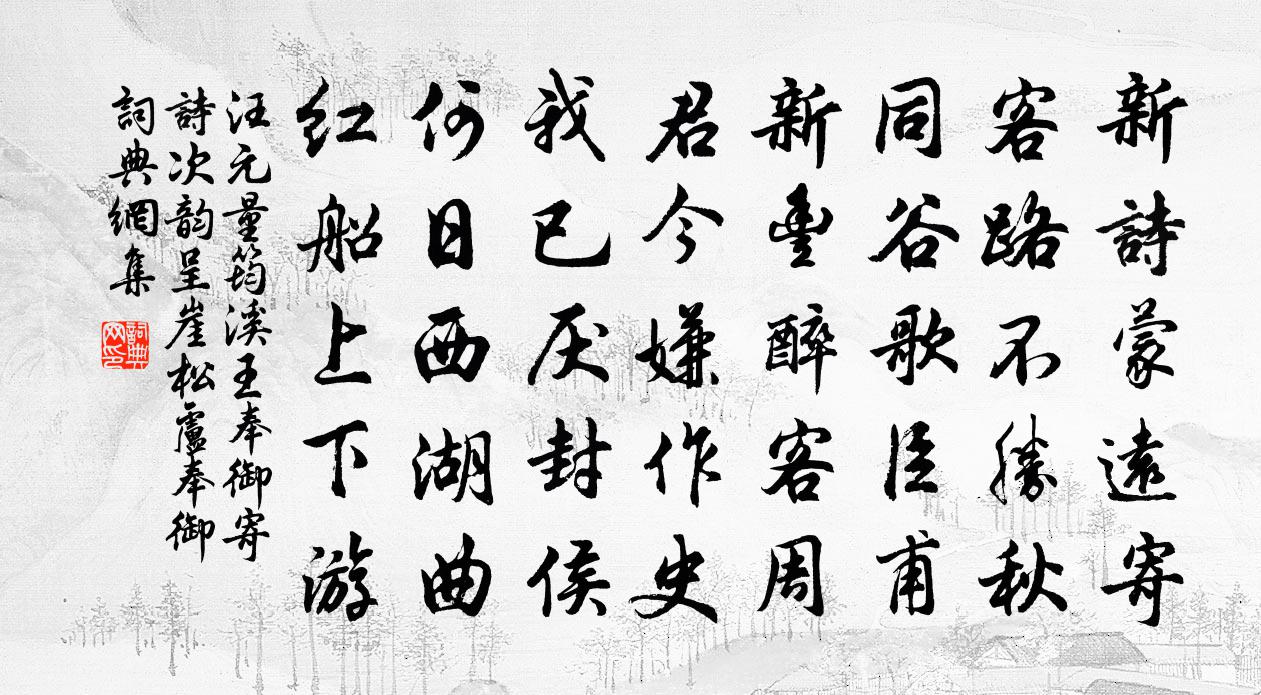 新詩蒙遠寄
客路不勝秋
同谷歌臣甫
新豐醉客周
君今嫌作史
我已厌封侯
何日西湖曲
红船上下游
汪元量筠溪王奉御寄
詩次韵呈崖松盧奉御
詞典網集
詞典网印